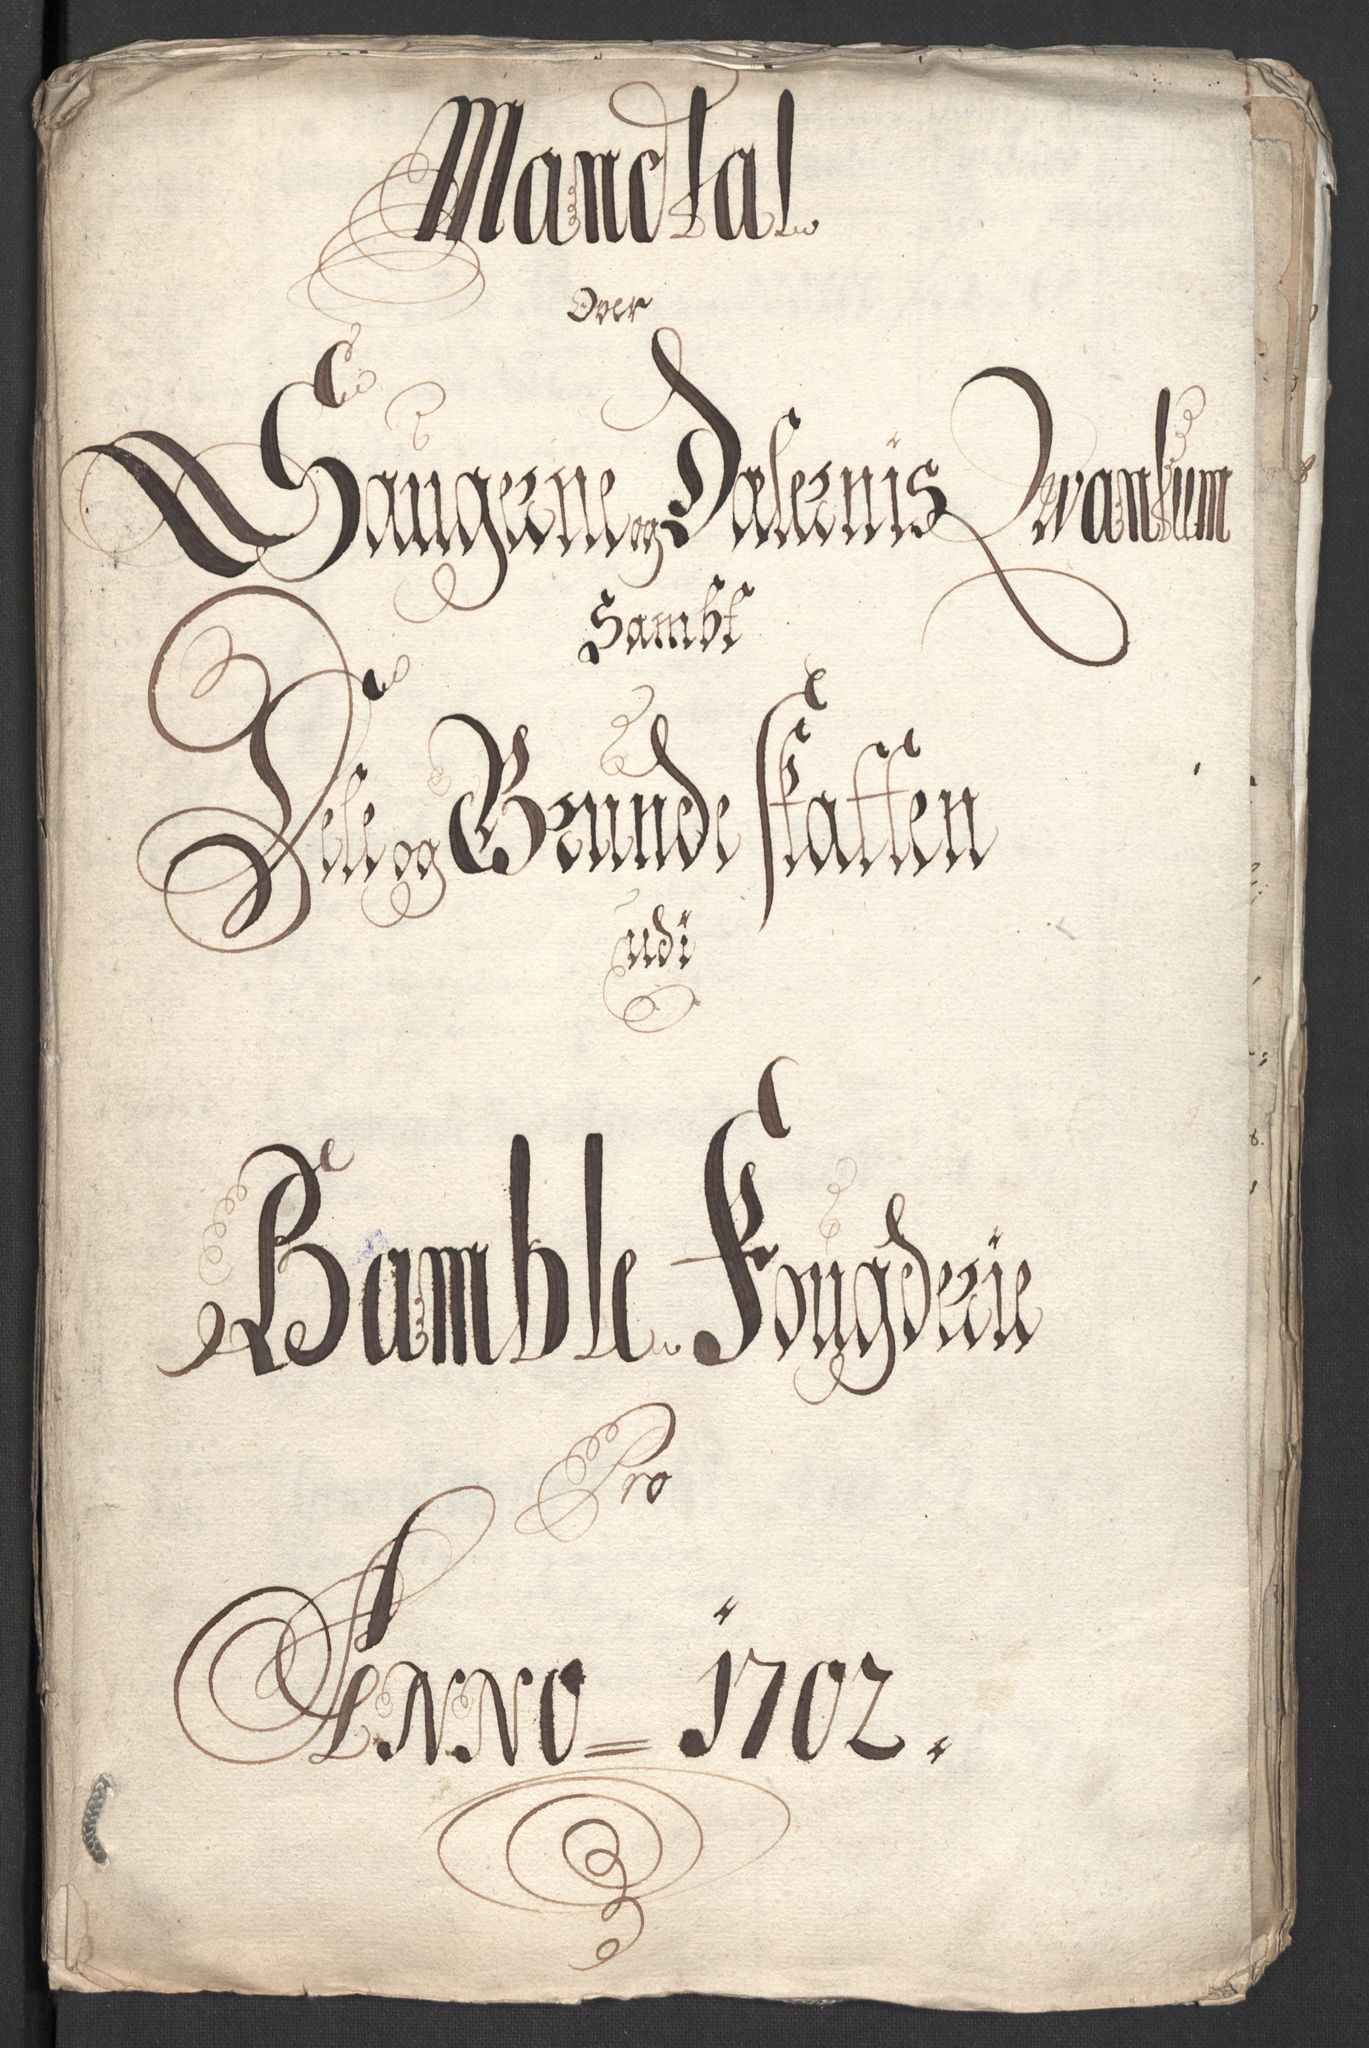 Mandtal
Over
Saugerne og Delernis Qwantum
Sambt
og Grunde skatten
udi
Bamble Fougderie
Pro
ANNO = 1702.